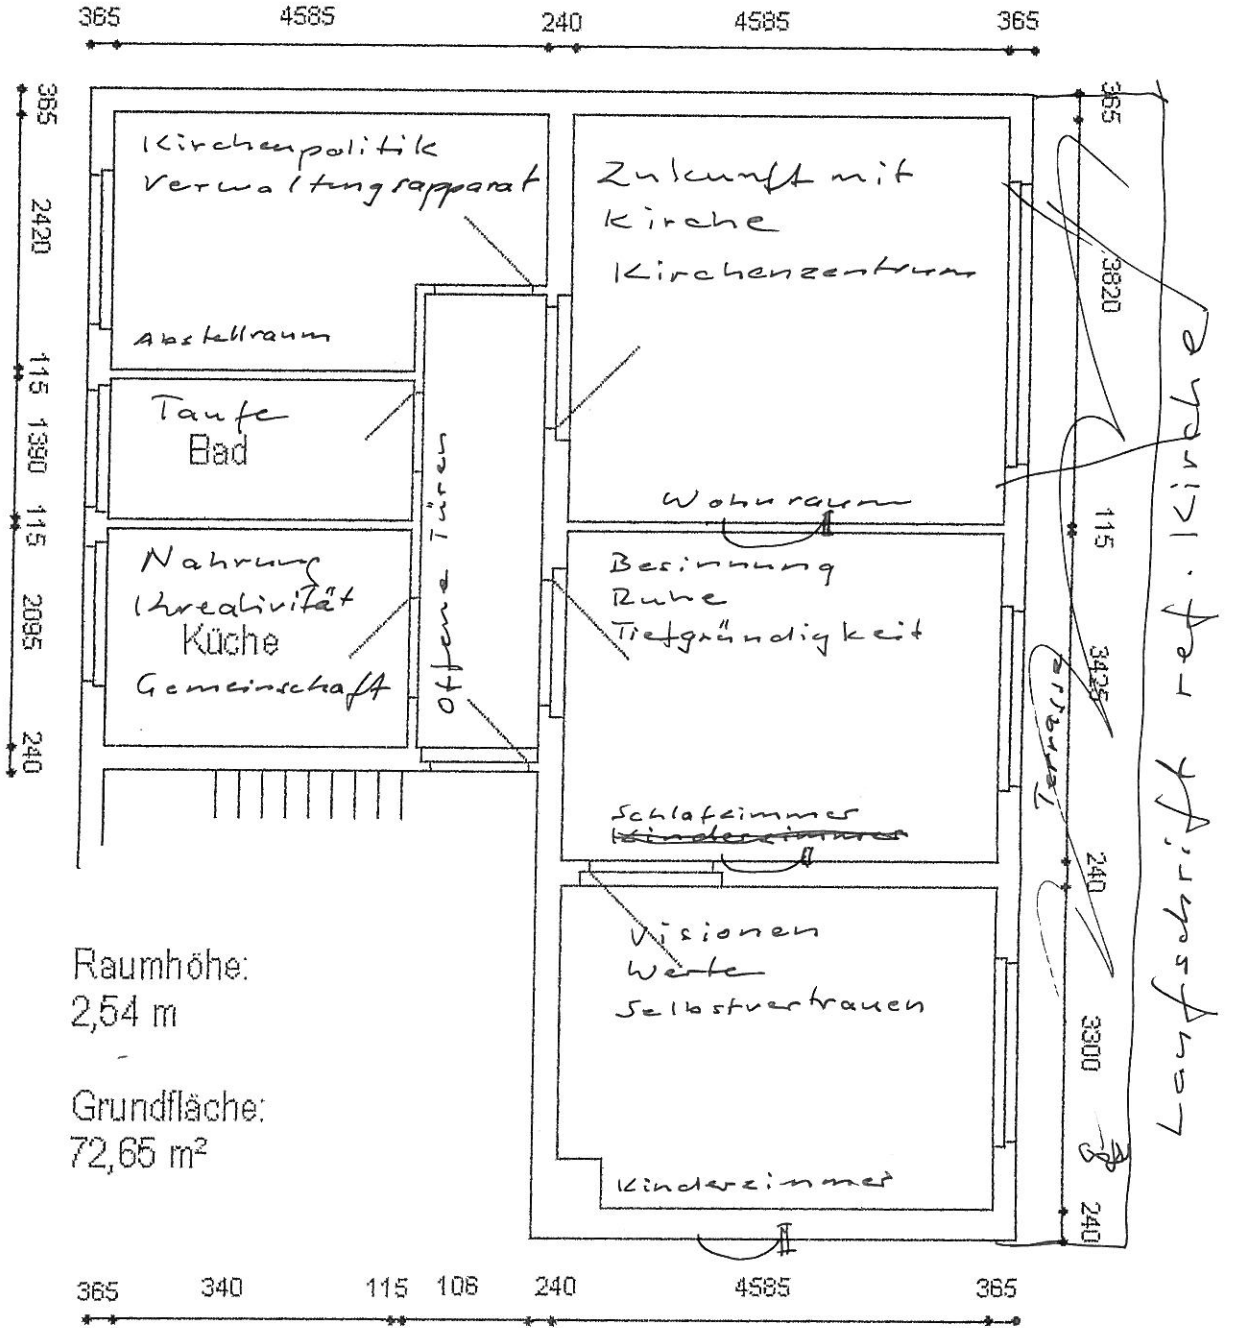 365 4585 240 4585 365
365
2420
115
1390
115
2095
240
Kirchenpolitik
Verwaltungsapparat
Abstellraum
Taufe
Bad
Nahrung
Kreativität
Küche
Gemeinschaft
Offene Türen
Zukunft mit
Kirche
Kirchenzentrum
Wohnraum
Besinnung
Ruhe
Tiefgründigkeit
Schlafzimmer
Kinderzimmer
Visionen
Werte
Selbstvertrauen
Kinderzimmer
365
3820
115
3425
240
3300
240
Terrasse
Laufschrift ref. Kirche
Raumhöhe:
2,54 m
Grundfläche:
72,65 m²
365 340 115 106 240 4585 365